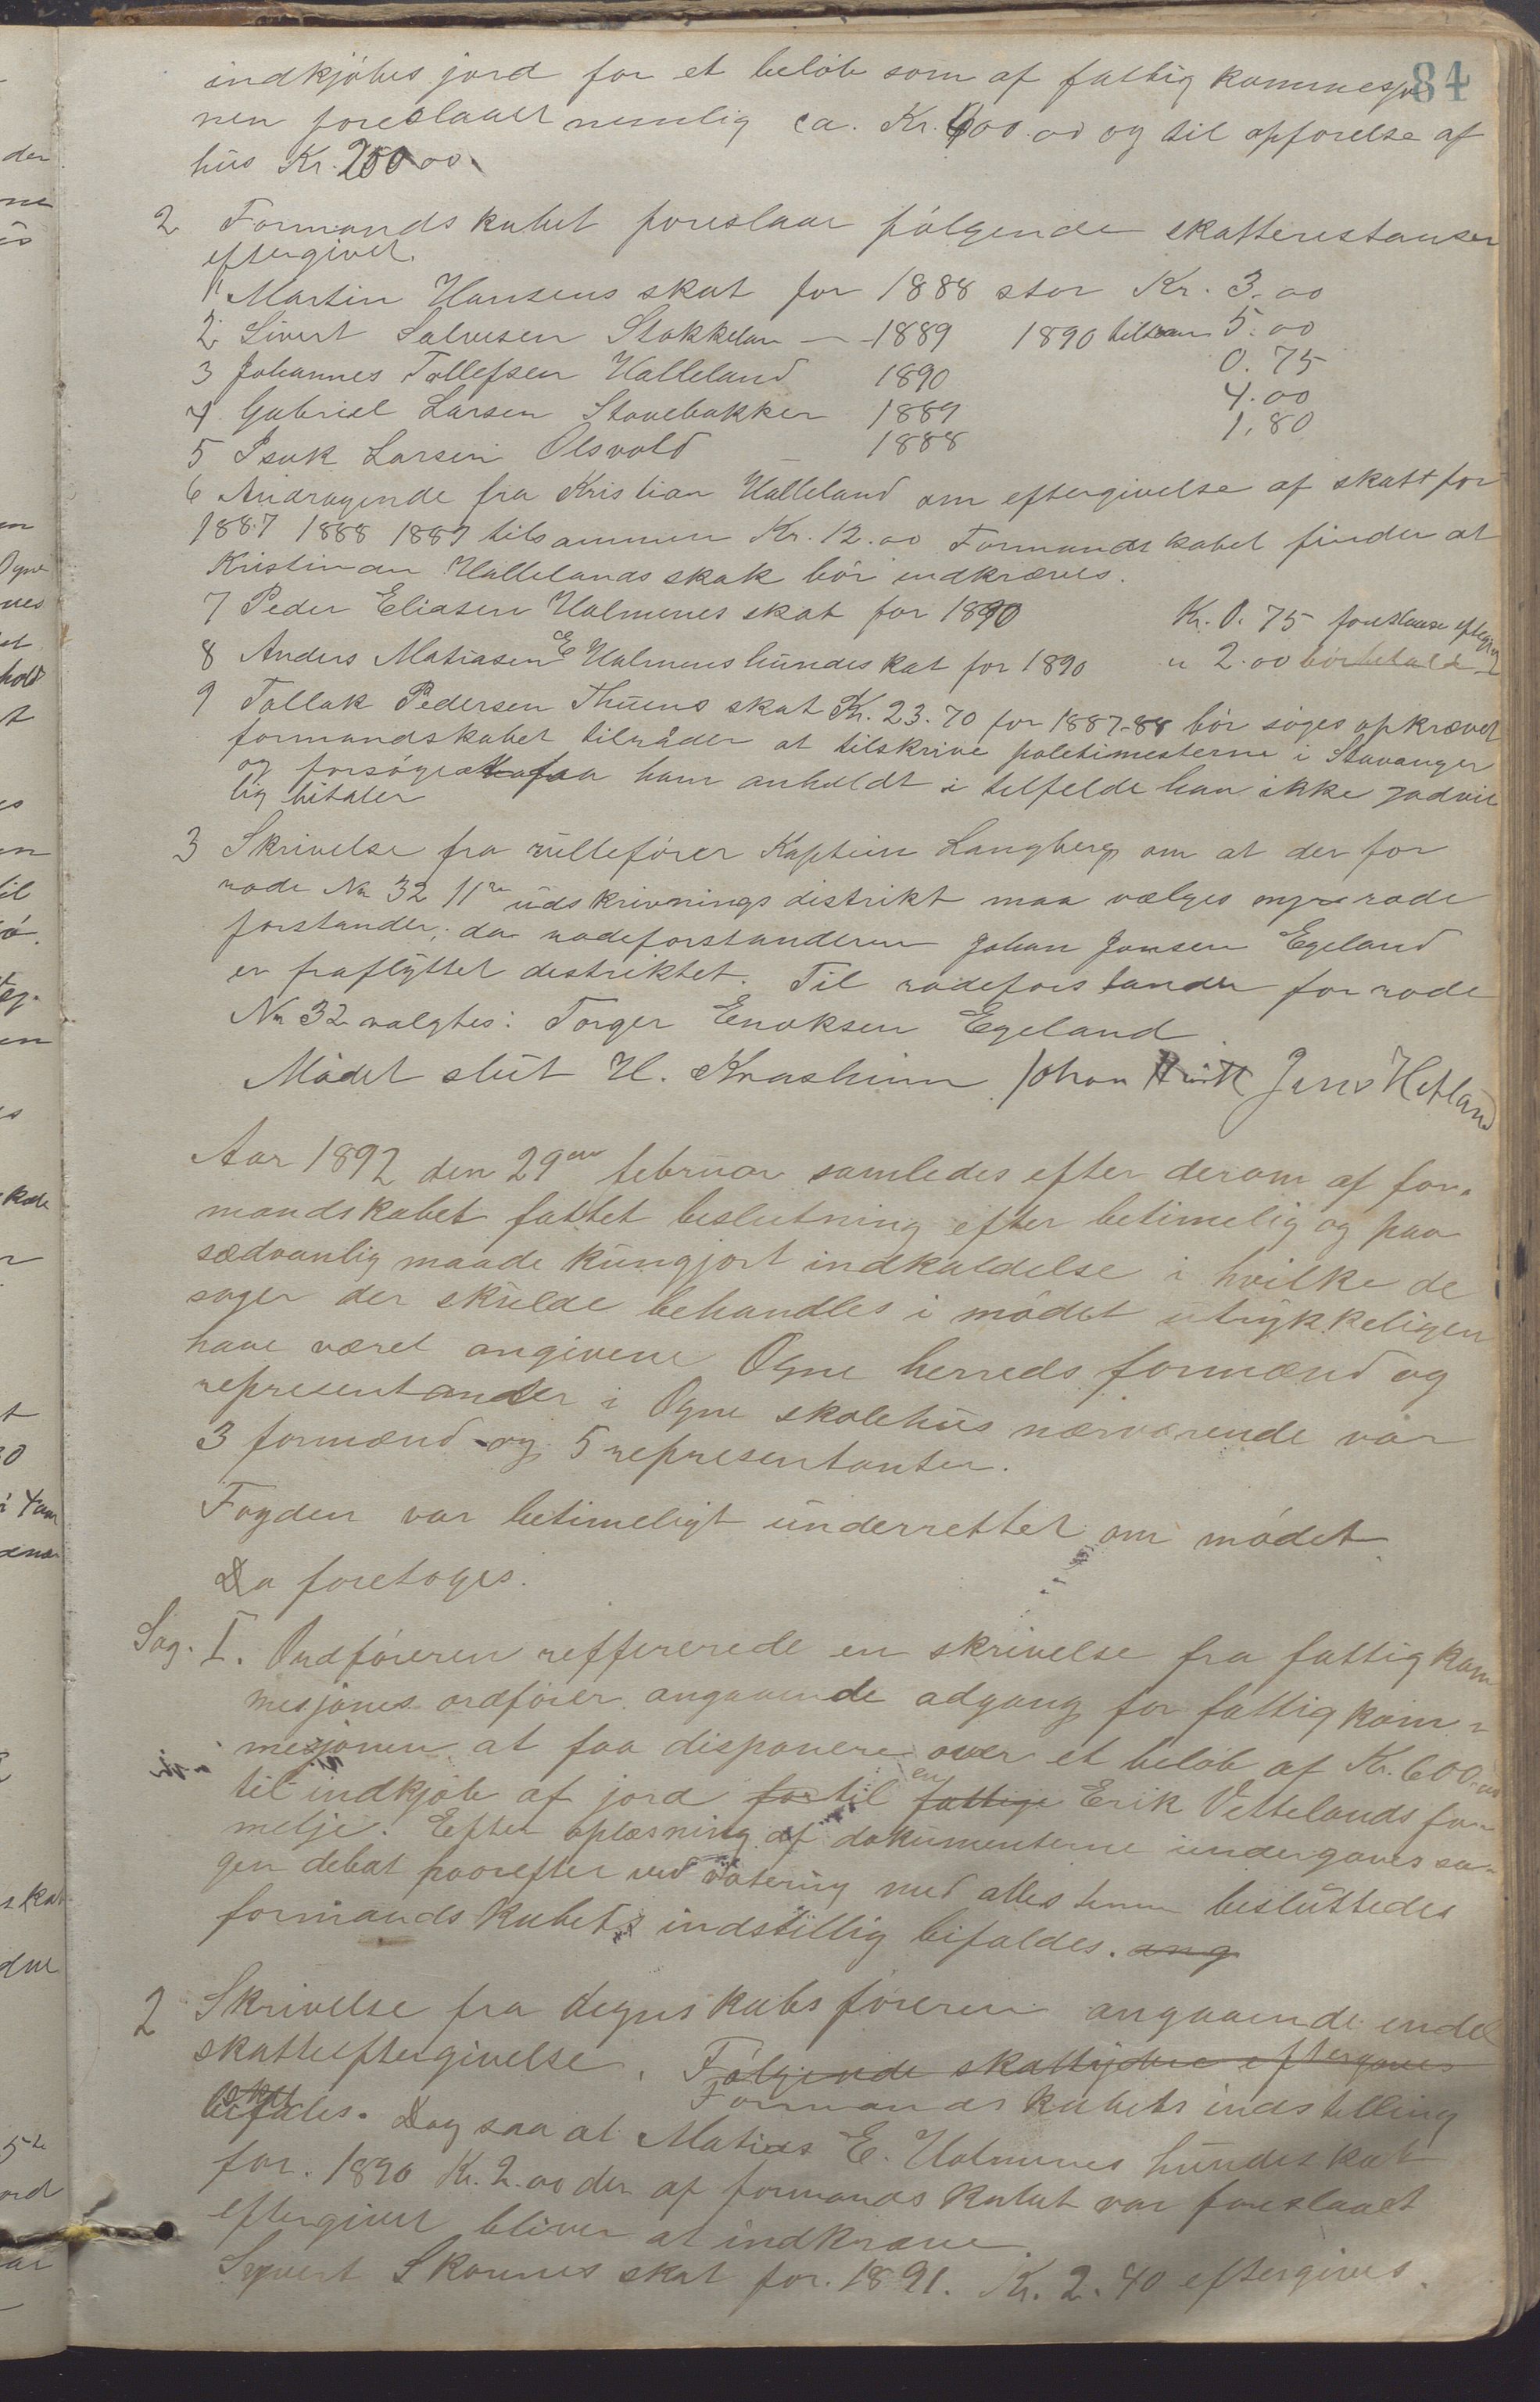 84
indkjøbes jord for et beløb som af fattig kommesjo
nen foreslaaet nemlig ca. Kr. 600.00 og til opførelse af
hus Kr. 200 00.
2 Formandskabet foreslaar følgende skatterestanser
eftergivet.
1 Martin Hansens skat for 1888 stor Kr. 3.00
2 Sivert Salvesen Stokkelan — 1889 1890 tilsam 5.00
3 Johannes Tollefsen Halleland 1890 0.75
4 Gabriel Larsen Stovebakken 1889 4.00
5 Isak Larsen Olsvold 1888 1.80
6 Andragende fra Kristian Halleland om eftergivelse af skatt for
1887 1888 1889 tilsammen Kr. 12.00 Formandskabet finder at
Kristian Hallelands skak bør indkræves.
7 Peder Eliasen Holmenes skat for 1890 Kr. 0.75 foreslaaes
8 Anders Matiasen E Holmenes hundeskat for 1890 " 2.00 bør betales
9 Tollak Pedersen Thuens skat Kr. 23.70 for 1887-88 bør søges opkrævet
formandskabet tilråder at tilskrive politimesterne i Stavanger
og forsøge at faa ham anholdt i tilfelde han ikke godvil
lig bitaler
3 Skrivelse fra rullefører Kaptein Langberg om at der for
rode No 32 11te udskrivnings distrikt maa vælges nye rode
forstander, da rodeforstanderen Johan Jonsen Egeland
er fraflyttet destriktet. Til rodeforstander for rode
No 32 valgtes: Torger Enoksen Egeland.
Mødet slut H. Johan Jens Hetland
Aar 1892 den 29de februar samledes efter derom af for-
mandskabet fattet beslutning efter betimelig og paa
sædvanlig maade kungjort indkaldelse i hvilke de
sager der skulde behandles i mødet utrykkeligen
have været angivene Ogne herreds formænd og
representander i Ogne skolehus nærværende var
3 formænd og 5 representanter.
Fogden var betimeligt underrettet om mødet.
Da foretoges.
Sag. I. Ordføreren reffererede en skrivelse fra fattigkom
mesjones ordfører angaaende adgang for fattigkom-
mesjonen at faa disponere over et beløb af Kr. 600.00
til indkjøb af jord for til en fattige Erik Vettelands fa-
melje. Efter oplæsning af dokumenterne undergaves sa-
gen debat hvorefter ved votering med alles temm besluttedes
formandskabets indstillig bifaldes. ang
2 Skrivelse fra regnskabsføreren angaaende endel
skatteeftergivelse. Følgende skattydere eftergaves
skat Formandskabets indstelling
bifales. Dog saa at Matias E. Holmenes hundeskat
for. 1890 Kr. 2.00 der af formandskabet var foreslaaet
eftergivet bliver at indkræve.
Syvert Skarnes skat for. 1891. Kr. 2.40 eftergives.